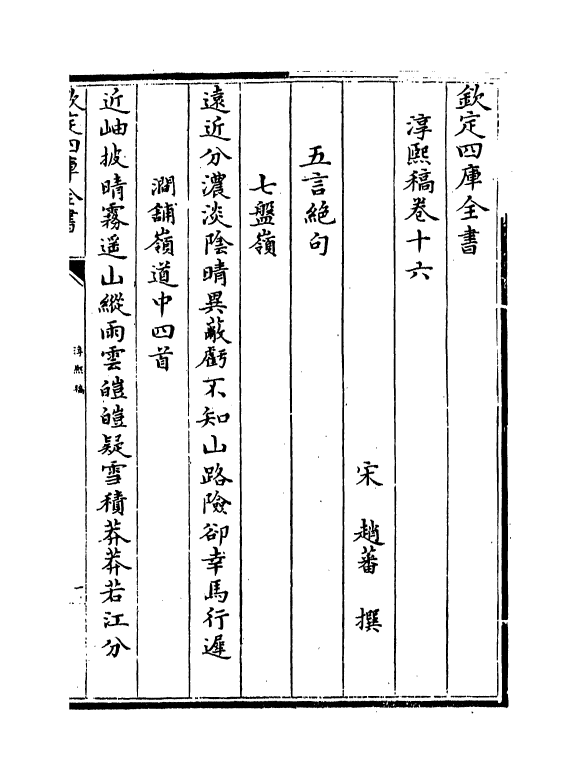 欽定四庫全書
淳熙稿卷十六
宋 趙蕃 撰
五言絶句
七盤嶺
遠近分濃淡陰晴異蔽虧不知山路險卻幸馬行遲
澗鋪嶺道中四首
近岫披晴霧遥山縱雨雲皚皚疑雪積莽莽若江分
欽定四庫全書
淳熙稿
一